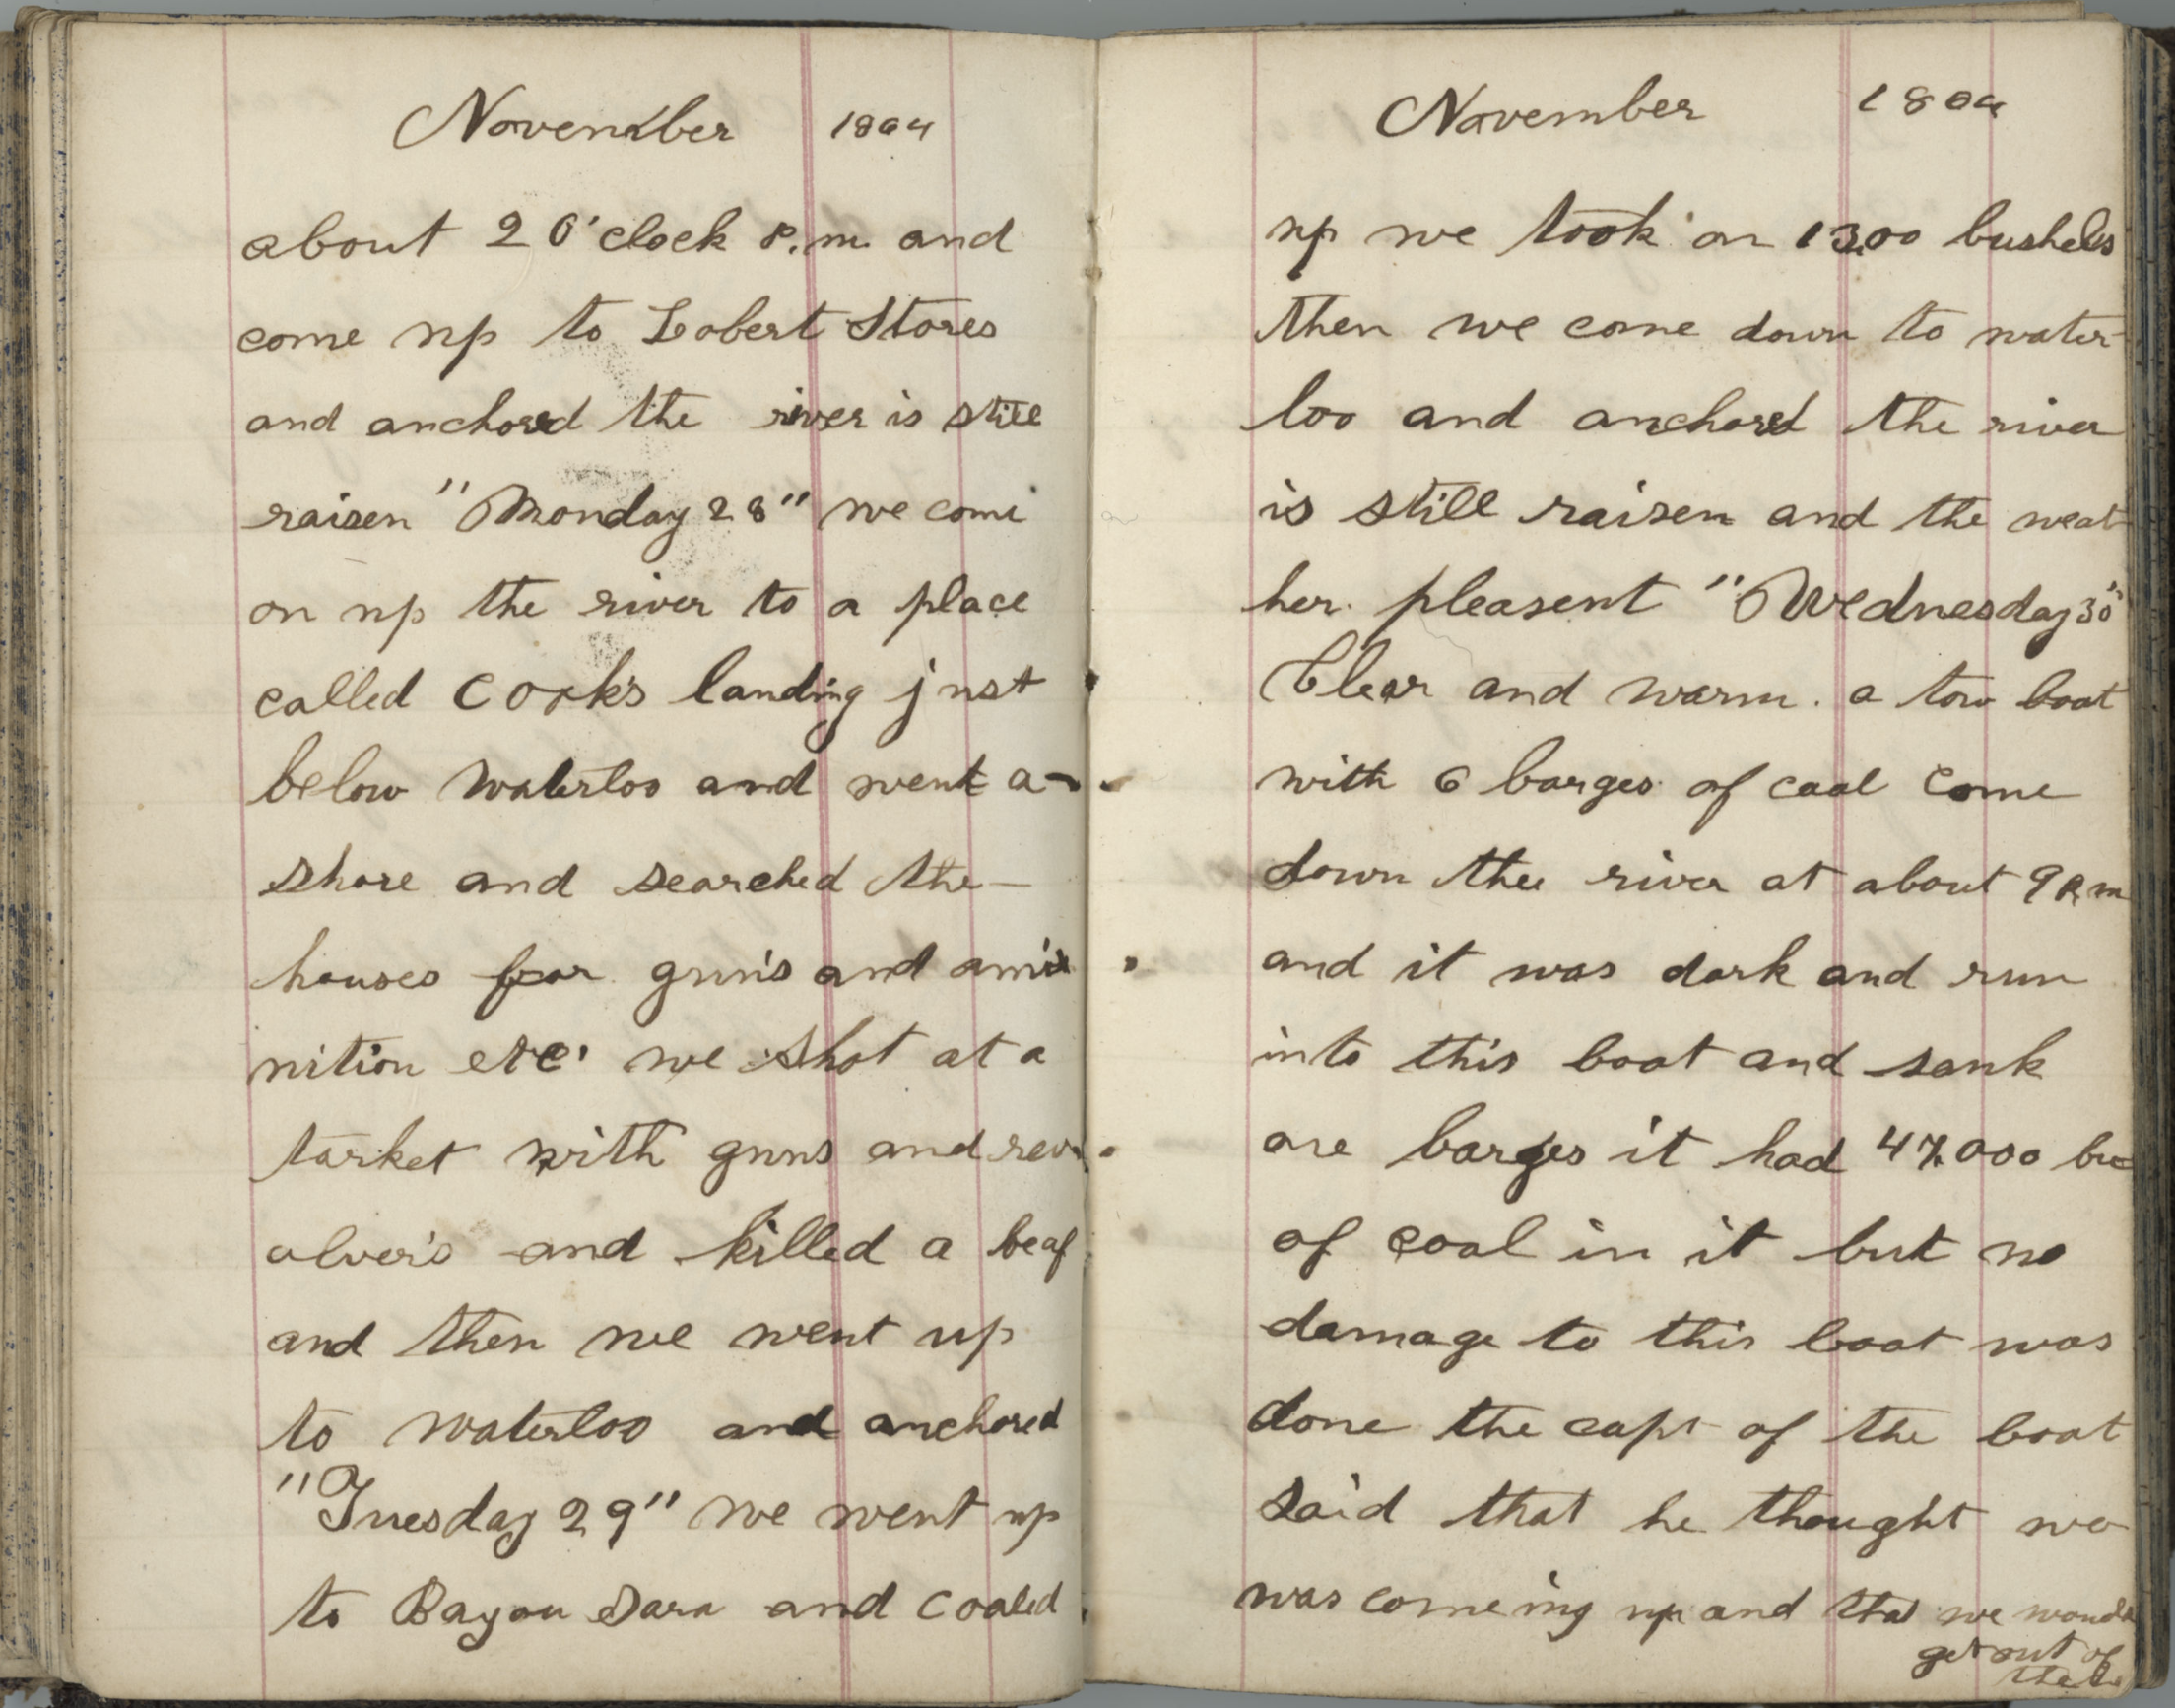 November 1864
about 2 O'clock P.m. and
come up to Lobert Stores
and anchored the river is still
raisen "Monday 28" we come
on up the river to a place
called Cook's landing just
below Waterloo and went a-
shore and searched the
houses for gun's and am
nition etc. we shot at a
tarket with guns and rev
olver's and killed a beaf
and then we went up
to Waterloo and anchored
"Tuesday 29" we went up
to Bayou Sara and Coaled
November 1864
up we took on 1300 bushels
then we come down to water-
loo and anchored the river
is still raisen and the weat
her pleasent "Wednesday 30"
Clear and warm. a tow boat
with 6 barges of coal Come
down thee river at about 9 P.m
and it was dark and run
into this boat and sank
one barges it had 47.000 bu
of coal in it but no
damage to this boat was
done the capt of the boat
said that he thought we
was comeing up and that we would
get out of
the